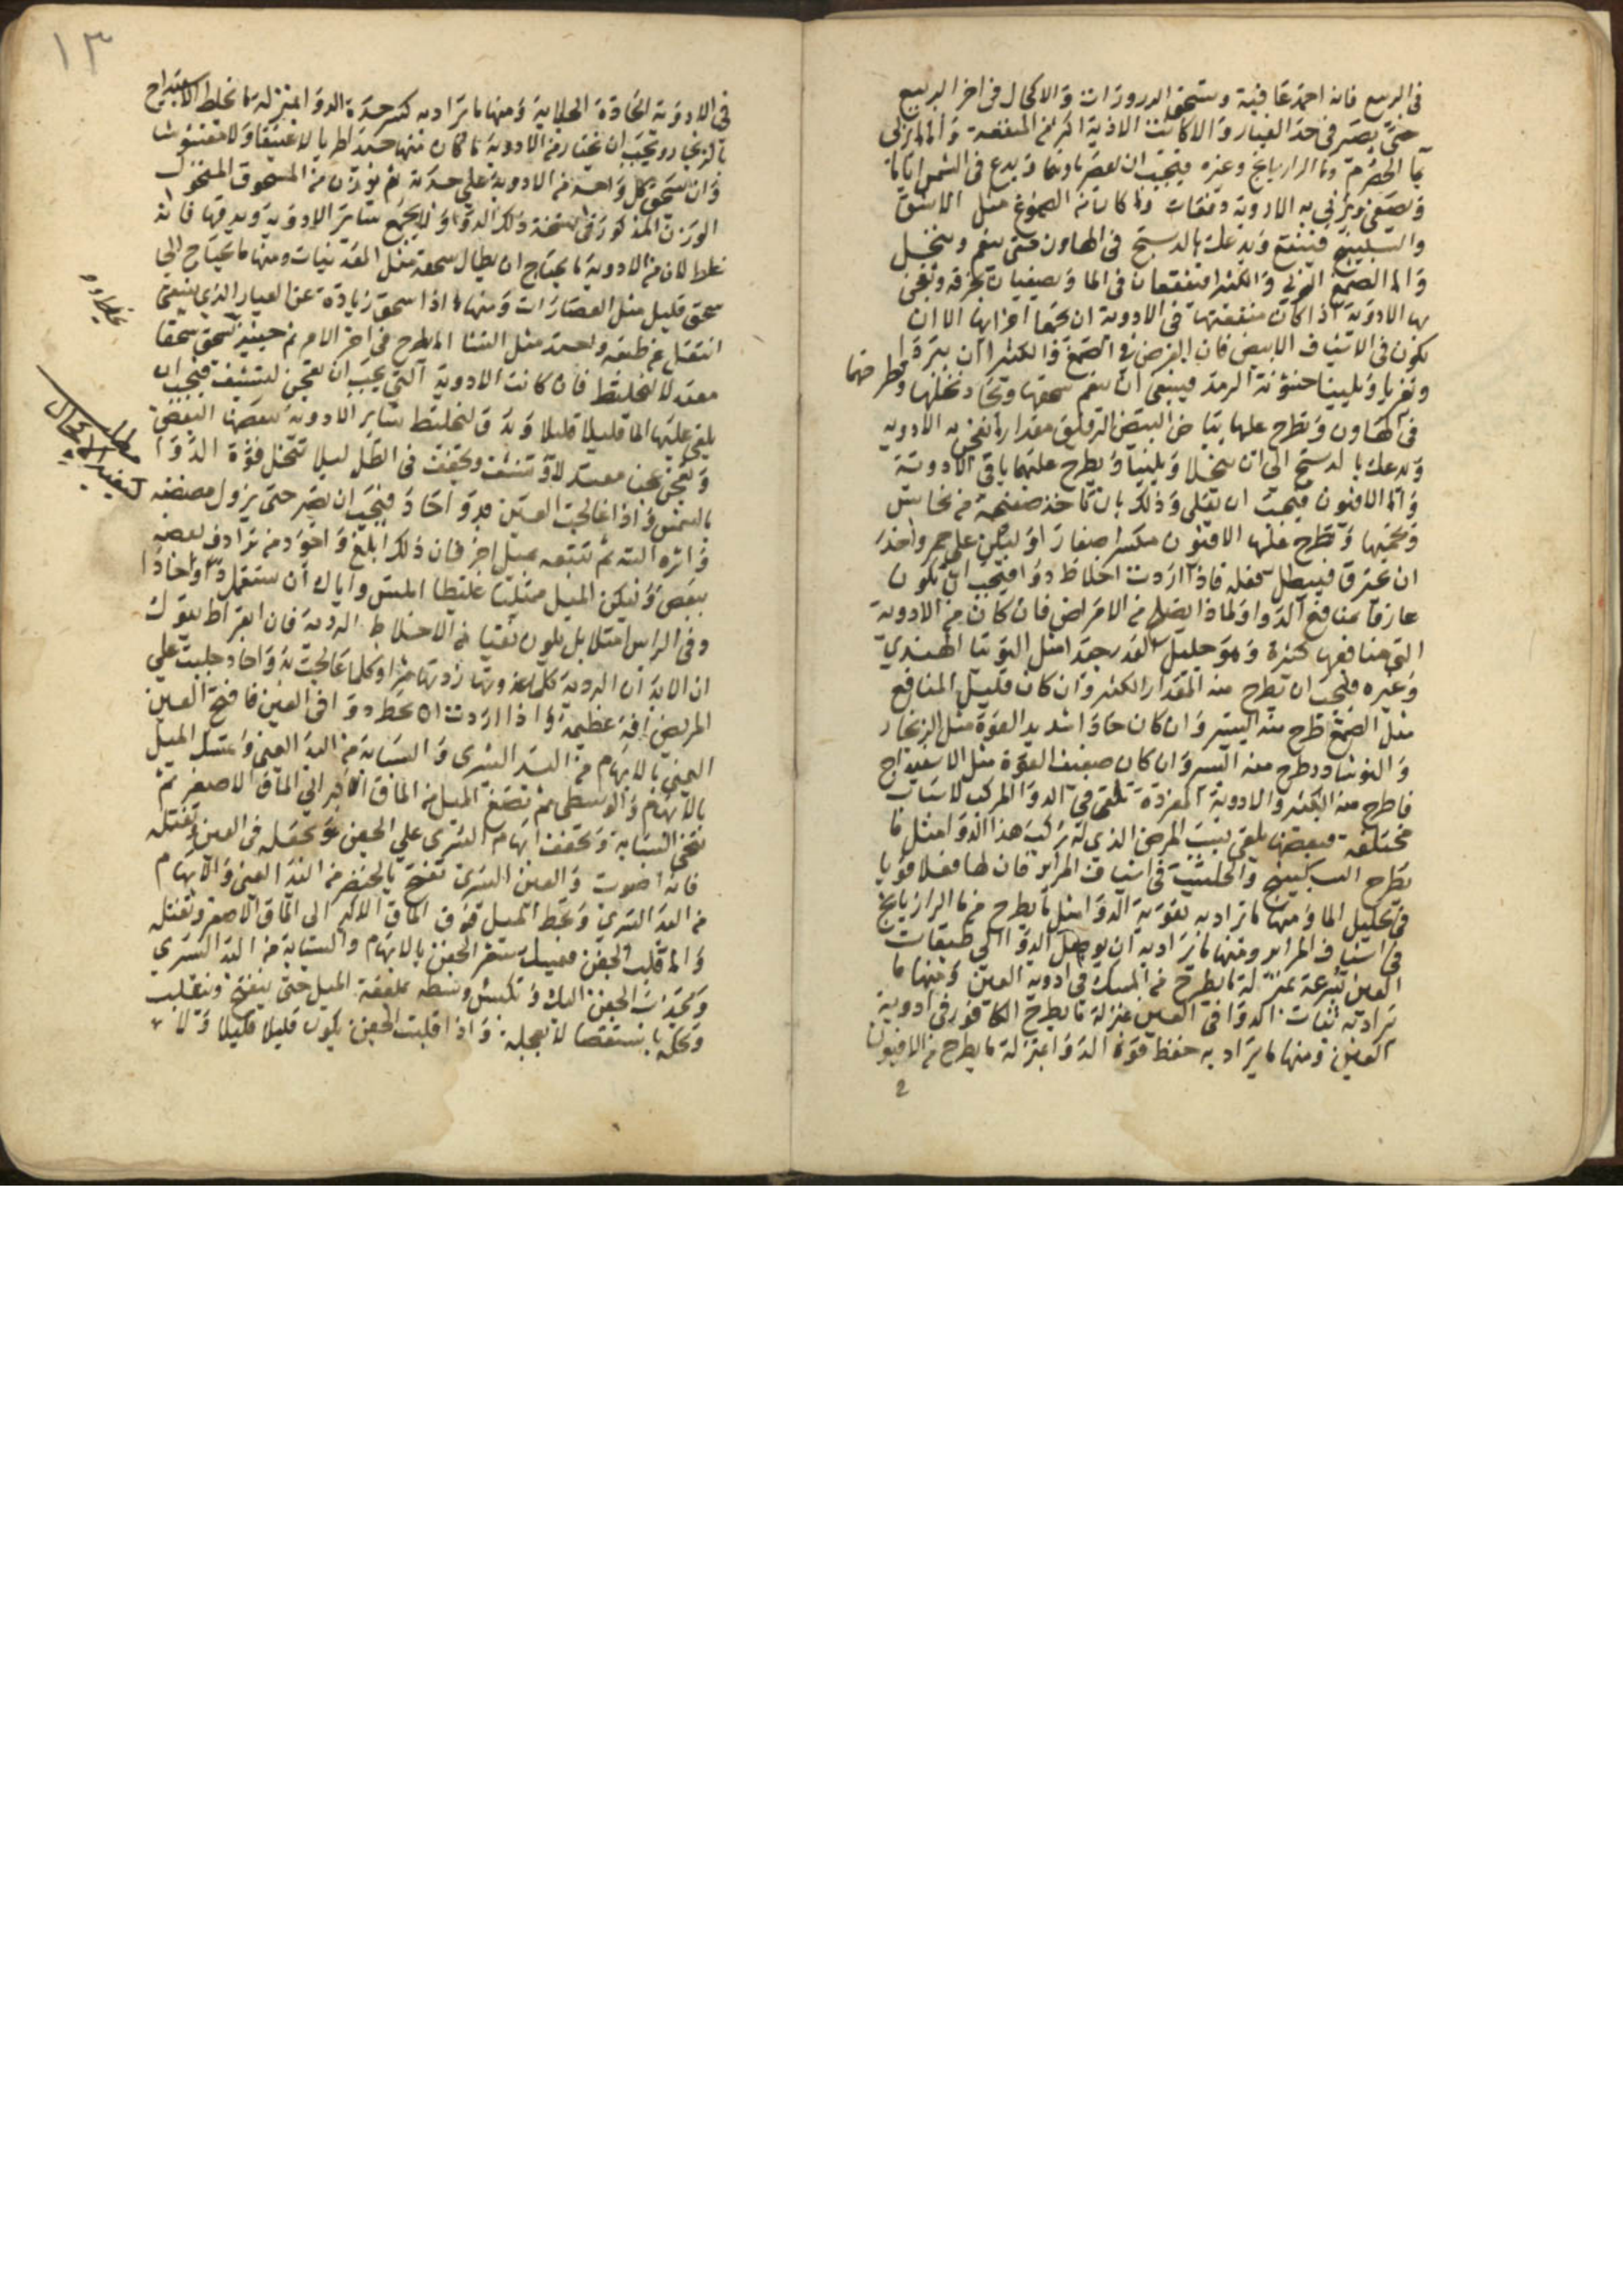 في الربيع فانه احمد عاقبة وسحق الدرورات والاكحال في اخر الربيع
حتى يصير في حد الغبار والا كانت الاذية اكبر من المنفعة واما المربى
بما الحصرم وما الرازيانج وغيره فيجب ان يعصر ماوهما ويدع في الشمس اياما
ويصفى ويربى به الادوية دفعات وما كان من الصموغ مثل الاشق
والسكبينج فينقع ويدعك بالدستج في الهاون حتى ينعم وينحل
واما الصمغ العربي والكثيرا فينقعان في الما ويصفيان بخرقة وتعجن
بها الادوية اذا كان منفعتها في الادوية ان يجمعا اجزايها الا ان
يكون في الاشياف الابيض فان الغرض في الصمغ والكثيرا ان يبردا
ويغريا ويلينا خشونة الرمد فينبغي ان ينعم سحقها ونخلها وتطرحهما
في الهاون وتطرح عليها بياض البيض الرقيق مقدار ما تعجن به الادوية
ويدعك بالدستج الى ان ينحلا ويلينا ويطرح عليهما باقي الادوية
واما الافيون فيجب ان يقلى وذلك بان تاخذ صفيحة من نحاس
وتحميها وتطرح عليها الافيون مكسرا صغارا وليكن على جمر واحذر
ان يحترق فيبطل فعله فاذا اردت اخلاط دوا فيجب ان تكون
عارفا بمنافع الدوا ولماذا يصلح من الامراض فان كان من الادوية
التي منافعها كثيرة وهو جليل القدر جدا مثل التوتيا الهندي
وغيره فيجب ان تطرح منه المقدار الكثير وان كان قليل المنافع
مثل الصمغ طرح منه اليسير وان كان حادا شديد القوة مثل الزنجار
والنوشادر طرح منه اليسير وان كان ضعيف القوة مثل الاسفيداج
فاطرح منه الكثير والادوية المفردة تلقى في الدوا المركب لاسباب
مختلفة فبعضها يلقى بسبب المرض الذي له ركب هذا الدوا مثل ما
يطرح السكبينج والحلتيت في اشياف المراير فان لها فعلا قويا
في تحليل الما ومنها ما تراد به تقوية الدوا مثل ما يطرح من ما الرازيانج
في اشياف المراير ومنها ما يراد به ان يوصل الدوا الى طبقات
العين بسرعة بمنزلة ما يطرح من المسك في ادوية العين ومنها ما
يراد به ثبات الدوا في العين بمنزلة ما يطرح الكافور في ادوية
العين ومنها ما يراد به حفظ قوة الدوا بمنزلة ما يطرح من الافيون
١٣
في الادوية الحادة الجلاية ومنها ما يراد به كسر حدة الدوا بمنزلة ما نخلط الاسفيداج
بالزنجار ويجب ان تختار من الادوية ما كان منها حديثا طريا لا عتيقا ولا مغشوشا
وان تسحق كل واحد من الادوية على حدته ثم يوزن من المسحوق المنخول
الوزن المذكور في نسخة ذلك الدوا ولا يجمع ساير الادوية ويدقها فانه
غلط لان من الادوية ما يحتاج ان يطال سحقه مثل المعدنيات ومنها ما يحتاج الى
سحق قليل مثل العصارات ومنها ما اذا سحق زيادة عن العيار الذي ينبغي
انتقل عن طبعه ولحد مثل النشا اطرح في اخر الامر ثم حينيذ تسحق سحقا
معتدلا لتختلط فان كانت الادوية التي يجب ان تعجن لتشيف فيجب ان
يلقى عليها الما قليلا قليلا وتدق لتختلط ساير الادوية بعضها البعض
وتعجن عجنا معتدلا وتشيف وتجفف في الظل ليلا تنحل قوة الدوا
بالشمس واذا عالجت العين بدوا حاد فيجب ان تصبر حتى يزول مضضه
واثره البتة ثم تتبعه بميل اخر فان ذلك ابلغ واجود من ترادف بعضه
ببعض وليكن الميل ممتليا غليظا املس واياك ان تستعمل دوا حادا
وفي الراس امتلا بل يكون نقيا من الاخلاط الردية فان ابقراط يقول
ان الابدان الردية كلما غذوتها زدتها شرا وكلما عالجت بدوا حاد جلبت على
المريض افة عظيمة واذا اردت ان تحط دوا في العين فافتح العين
اليمنى بالابهام من اليد اليسرى والسبابة من اليد اليمنى وتمسك الميل
بالابهام والوسطى ثم تضع الميل من الماق الاكبر الى الماق الاصغر ثم
تنحى السبابة وتخفف ابهام اليسرى على الجفن وتجعله في العين وتفتله
فانه اصوب والعين اليسرى تفتح بالخنصر من اليد اليمنى والابهام
من اليد اليسرى وتحط الميل فوق الماق الاكبر الى الماق الاصغر وتفتله
واما قلب الجفن فميل شعر الجفن بالابهام والسبابة من اليد اليسرى
وتجذب الجفن اليك وتكبس وسطه بملعقة الميل حتى ينفتح وينقلب
وتحكه باستقصا لا بعجلة واذا قلبت الجفن يكون قليلا قليلا ولا